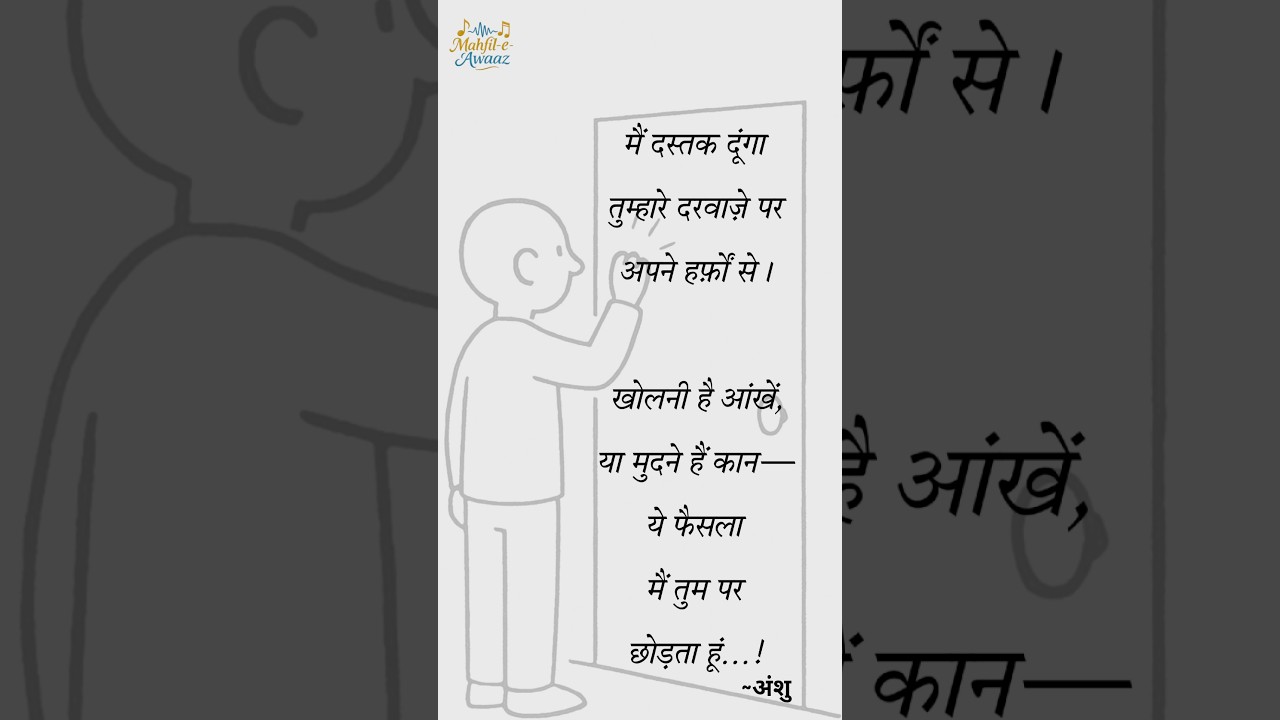 Mahfil-e-
Awaaz
मैं दस्तक दूंगा
तुम्हारे दरवाज़े पर
अपने हर्फ़ों से।
खोलनी है आंखें,
या मुदने हैं कान—
ये फैसला
मैं तुम पर
छोड़ता हूं...!
~अंशु